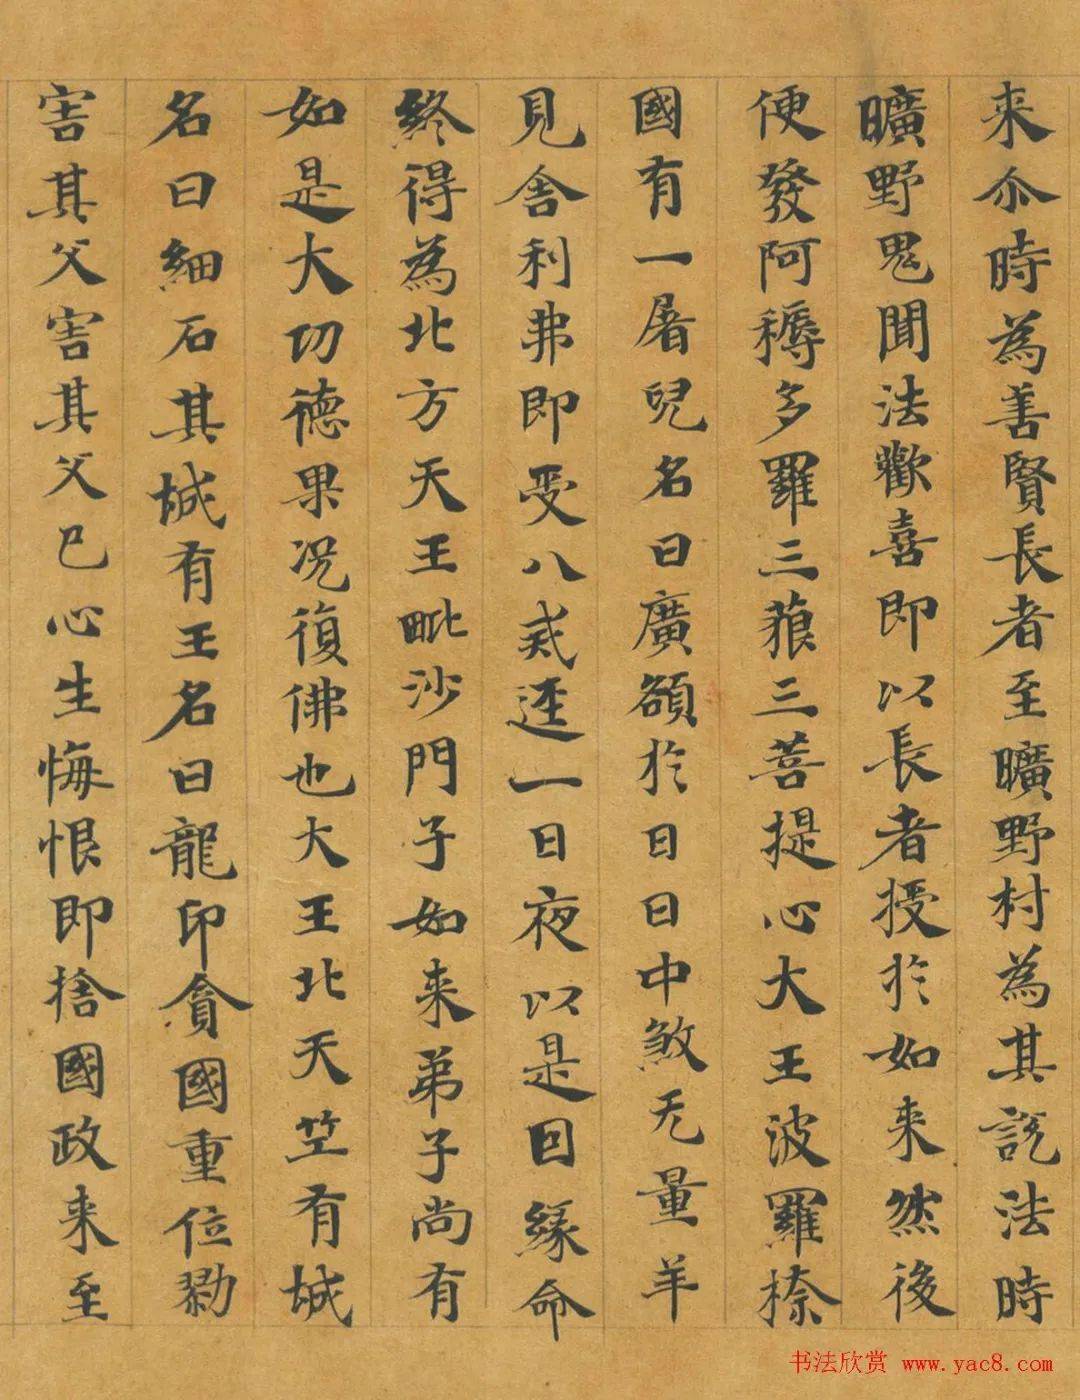 来尒時為善賢長者至曠野村為其説法時
曠野鬼聞法歡喜即以長者授於如来然後
便發阿耨多羅三藐三菩提心大王波羅㮈
國有一屠兒名曰廣額於日日中煞无量羊
見舍利弗即受八戒逕一日夜以是因緣命
終得為北方天王毗沙門子如来弟子尚有
如是大功德果况復佛也大王北天竺有城
名曰細石其城有王名曰龍印貪國重位勠
害其父害其父已心生悔恨即捨國政来至
书法欣赏 www.yac8.com